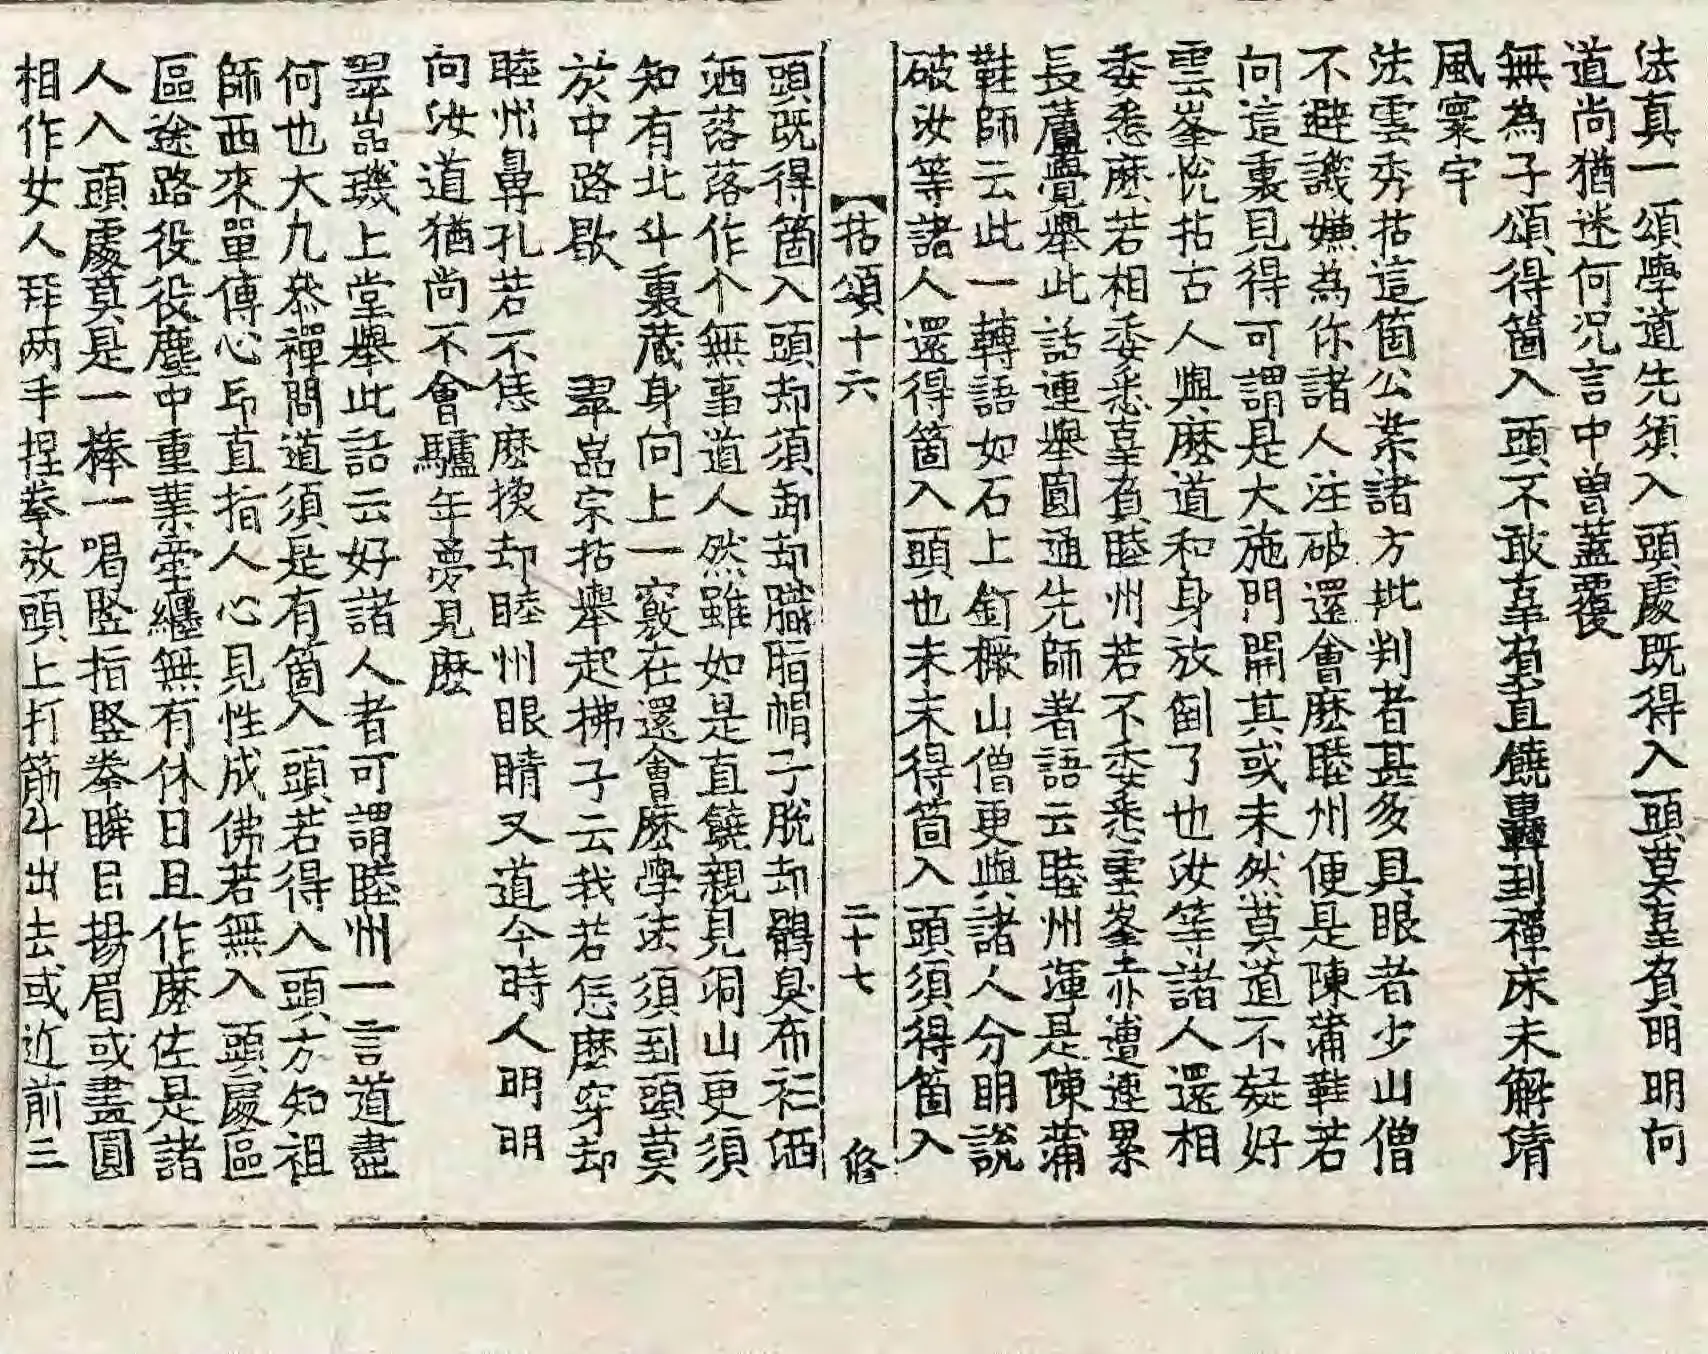 法真一頌學道先須入頭處既得入頭莫辜負明明向
道尚猶迷何况言中曾蓋覆
無為子頌得箇入頭不敢辜負直饒轟到禪床未解清
風寰宇
法雲秀拈這箇公案諸方批判者甚多具眼者少山僧
不避譏嫌為你諸人注破還會麽睦州便是陳蒲鞋若
向這裏見得可謂是大施門開其或未然莫道不疑好
雲峯悅拈古人與麽道和身放倒了也汝等諸人還相
委悉麽若相委悉辜負睦州若不委悉雲峯亦遭連累
長蘆覺舉此話連舉圓通先師著語云睦州渾是陳蒲
鞋師云此一轉語如石上釘橛山僧更與諸人分明說
破汝等諸人還得箇入頭也未未得箇入頭須得箇入
拈頌十六 二十七 俢
頭既得箇入頭却須卸却膱脂帽子脫却鶻臭布衫洒
洒落落作个無事道人然雖如是直饒親見洞山更須
知有北斗裏蔵身向上一竅在還會麽學法須到頭莫
於中路歇 翠嵓宗拈舉起拂子云我若恁麽穿却
睦州鼻孔若不恁麽換却睦州眼睛又道今時人明明
向汝道猶尚不會驢年夢見麽
翠嵓璣上堂舉此話云好諸人者可謂睦州一言道盡
何也大凢叅禪問道須是有箇入頭若得入頭方知祖
師西來單傳心印直指人心見性成佛若無入頭處區
區途路役役塵中重業牽纏無有休日且作麽生是諸
人入頭處莫是一棒一喝竪指竪拳瞬目揚眉或畫圓
相作女人拜两手捏拳放頭上打筋斗出去或近前三